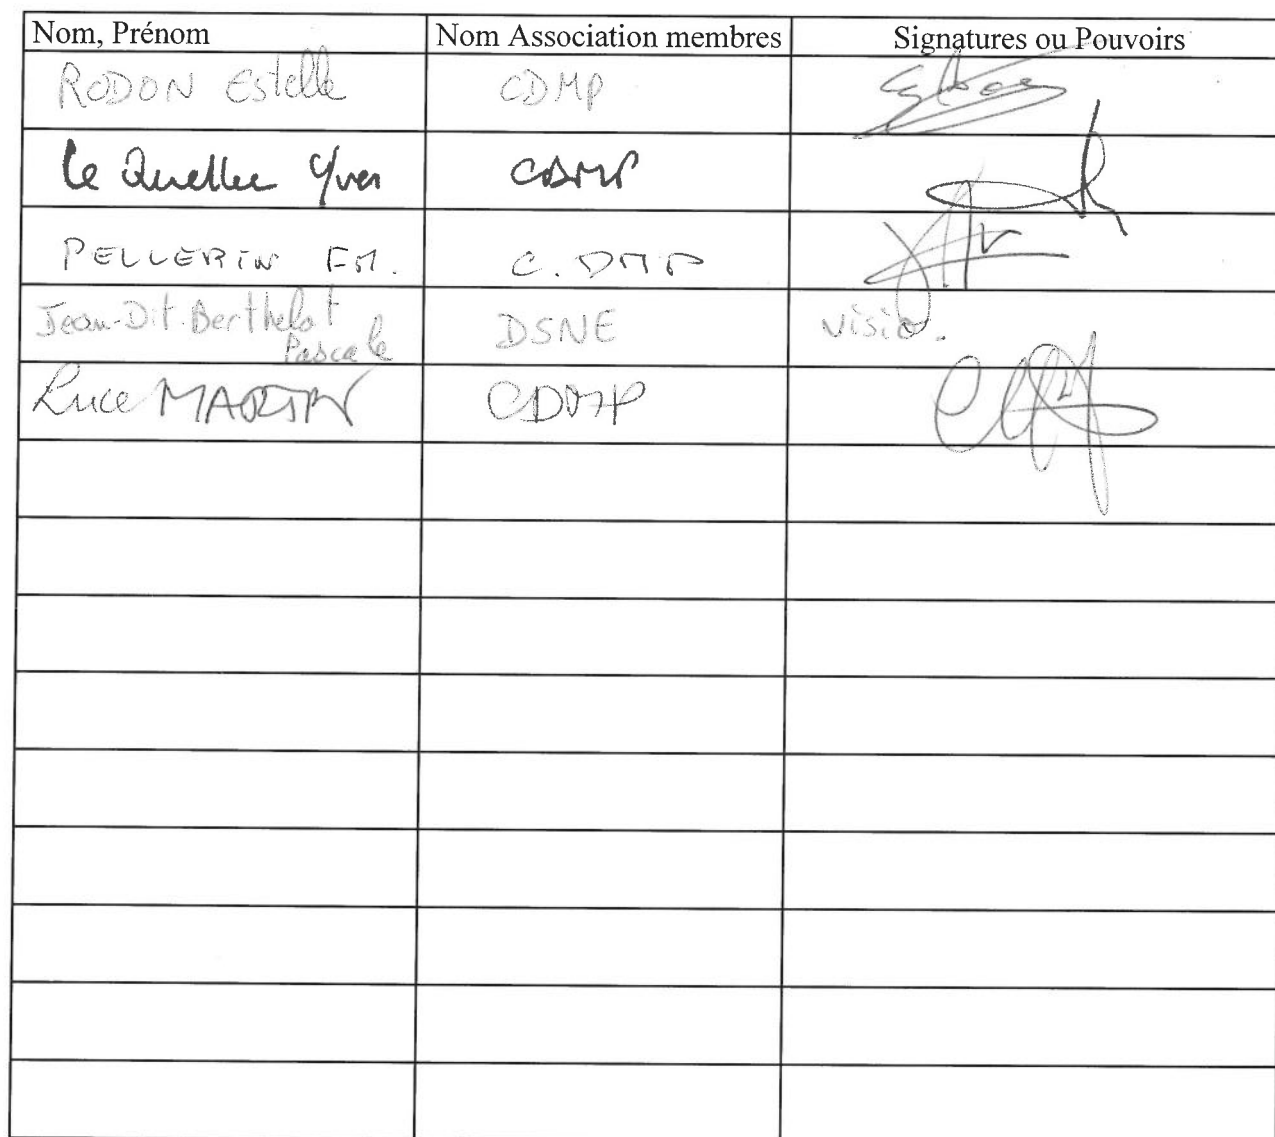 Nom, Prénom Nom Association membres Signatures ou Pouvoirs
RODON Estelle CDMP
Le Quellec Yves CDMP
PELLERIN F.M. C.DMP
Jean-Dit-Berthelot
Pascale DSNE visio.
Luce MARTIN CDMP